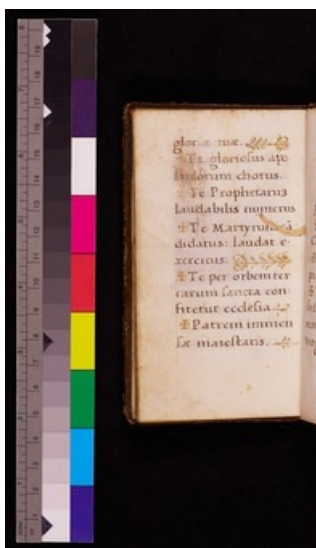 gloriæ tuæ.
Te gloriosus apo
stolorum chorus.
Te Prophetarum
laudabilis numerus
Te Martyrum cā
didatus: laudat e-
xercitus:
Te per orbem ter
rarum sancta con-
fitetur ecclesia.
Patrem immen
sæ maiestatis.